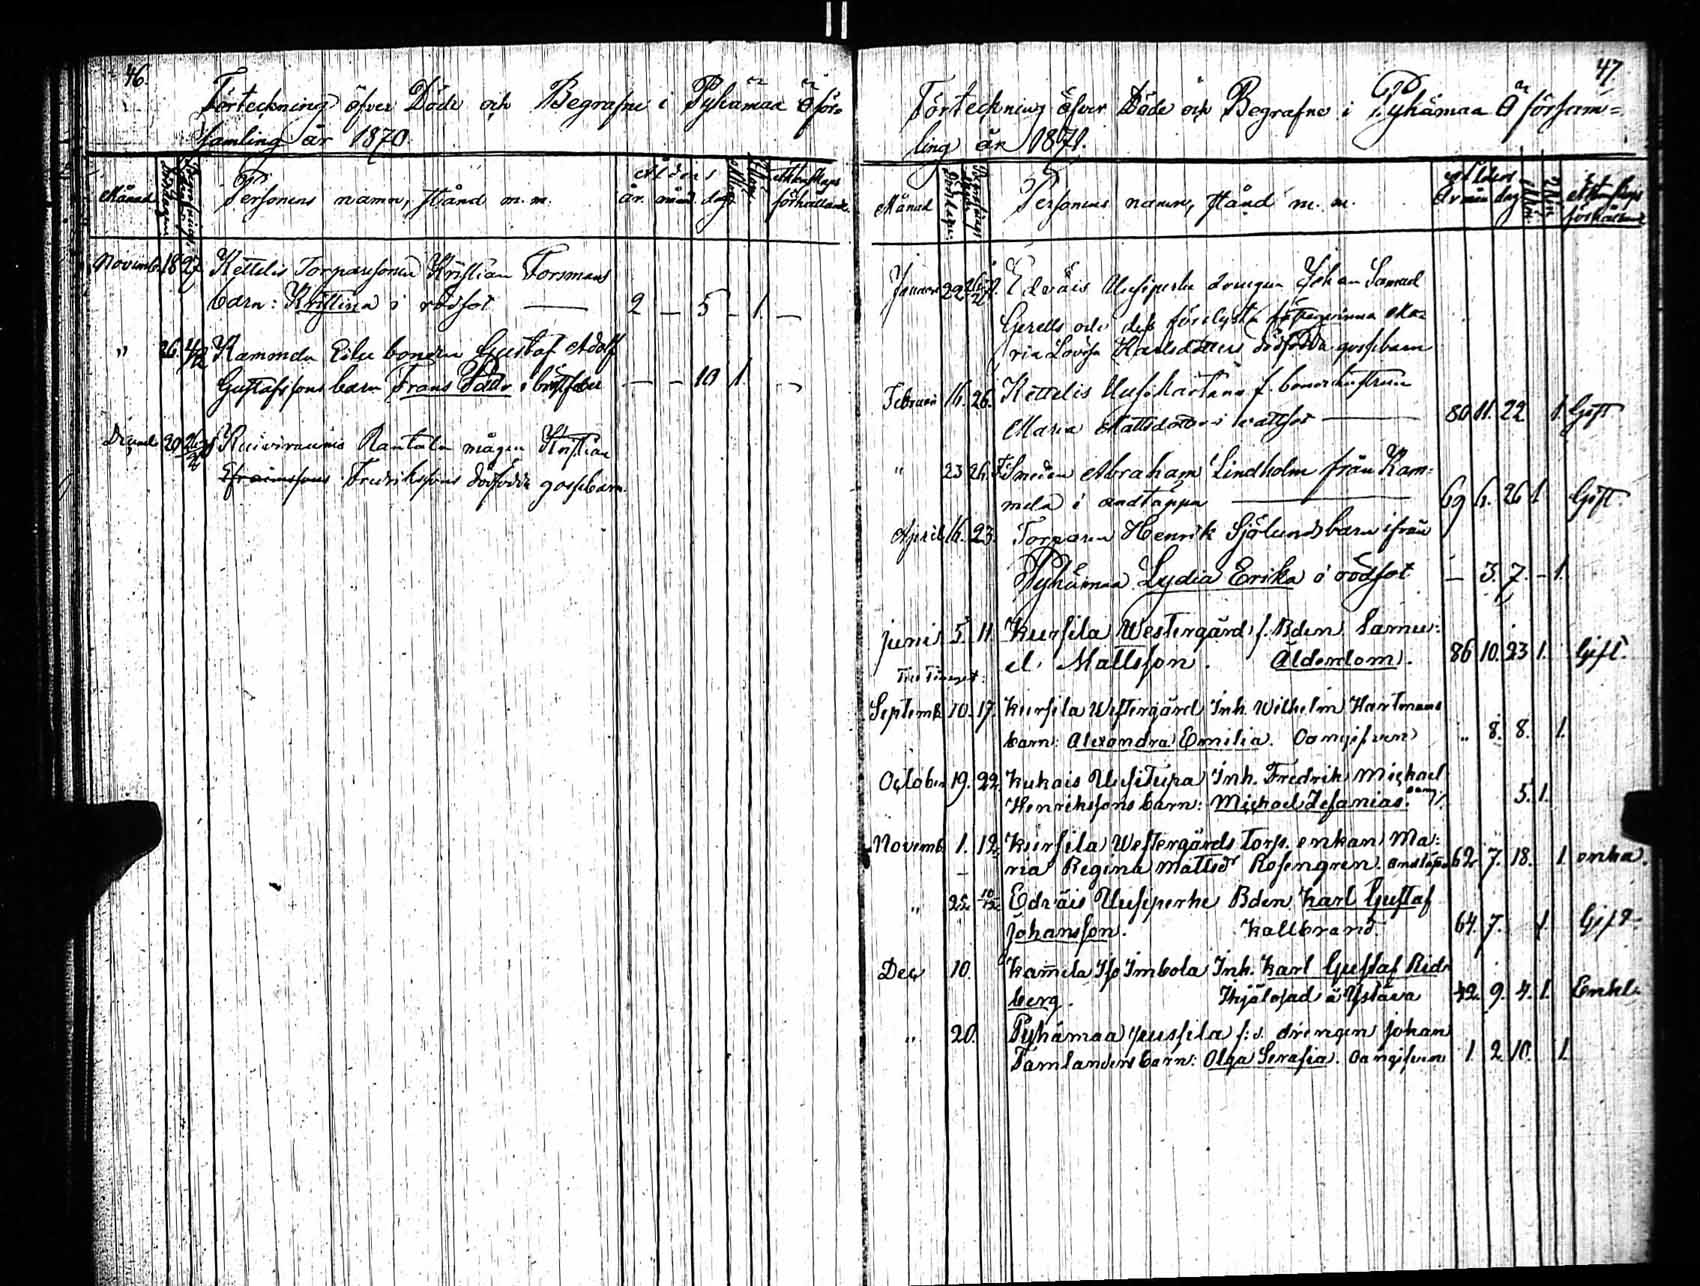 46.
Förteckning öfver Döde och Begrafne i Pyhämaa Ö för=
samling år 1870.
Månad Dödsdagen Begrafnings Personens namn, Stånd m. m. Ålder år. mån. dag. Mkön Qkön Äktenskaps förhållande
Novemb. 18 27 Kettelis Torparesonen Kristian Forsmans
barn: Kristina i rödsot 2 — 5 — 1. —
" 26 4/12 Kammela Eilu bonden Gustaf Adolf
Gustafssons barn Frans i bröstfeber — — 10 1. —
20 Rantala mågen Kristian
Efraimssons Fredrikssons dödfödda gossebarn.
47.
Förteckning öfver Döde och Begrafne i Pyhämaa Ö försam=
ling år 1871.
Månad Personens namn, Stånd m. m. Ålder År mån dag Mkön Qkön förhållande
Januari 29 Edväis Uusiperhe drengen Johan Samuel
Gerells och dess qvinna Ma=
ria Lovisa Karlsdotters dödfödda gossebarn
Februari 16. 26. Kettelis f. bondehustrun
Maria Mattsdotter i vattsot 80 11. 22 1. Gift
" 23 26. Smeden Abraham Lindholm från Kam=
mela i andtäppa 69 6. 26 1. Gift.
April 16. 23. Torparen Henrik Sjölunds barn ifrån
Pyhämaa Lydia Erika i rödsot — 3. 7. — 1.
juni 5 11 Kursila Westergård f. Bden Samu=
el Mattsson. Ålderdom. 86 10. 23 1. Gift.
Septemb. 10. 17. Kursila Westergård Inh. Wilhelm Hartmans
barn: Alexandra Emilia. Oangifven " 8. 8. 1.
October 19. 22. Kukais Uusitupa Inh. Fredrik Michael
Henrikssons barn: Michael Zefanias. 5. 1.
Novemb. 1. 12. Kursila Westergårds torp. enkan Ma=
ria Regina Mattsdr Rosengren. 62 7. 18. 1. enka.
" 25. 10/12 Edväis Uusiperhe Bden Karl Gustaf
Johansson. Kallbrand. 64. 7. 1. Gift.
Dec 10. Kammela Iso Imbola Inh. Karl Gustaf Rid=
berg. Ihjälosad 42. 9. 4. 1. Enkl.
" 20. Pyhämaa Jussila f. d. drengen Johan
Tamlanders barn: Olga Serafia. Oangifven 1. 2 10. 1.